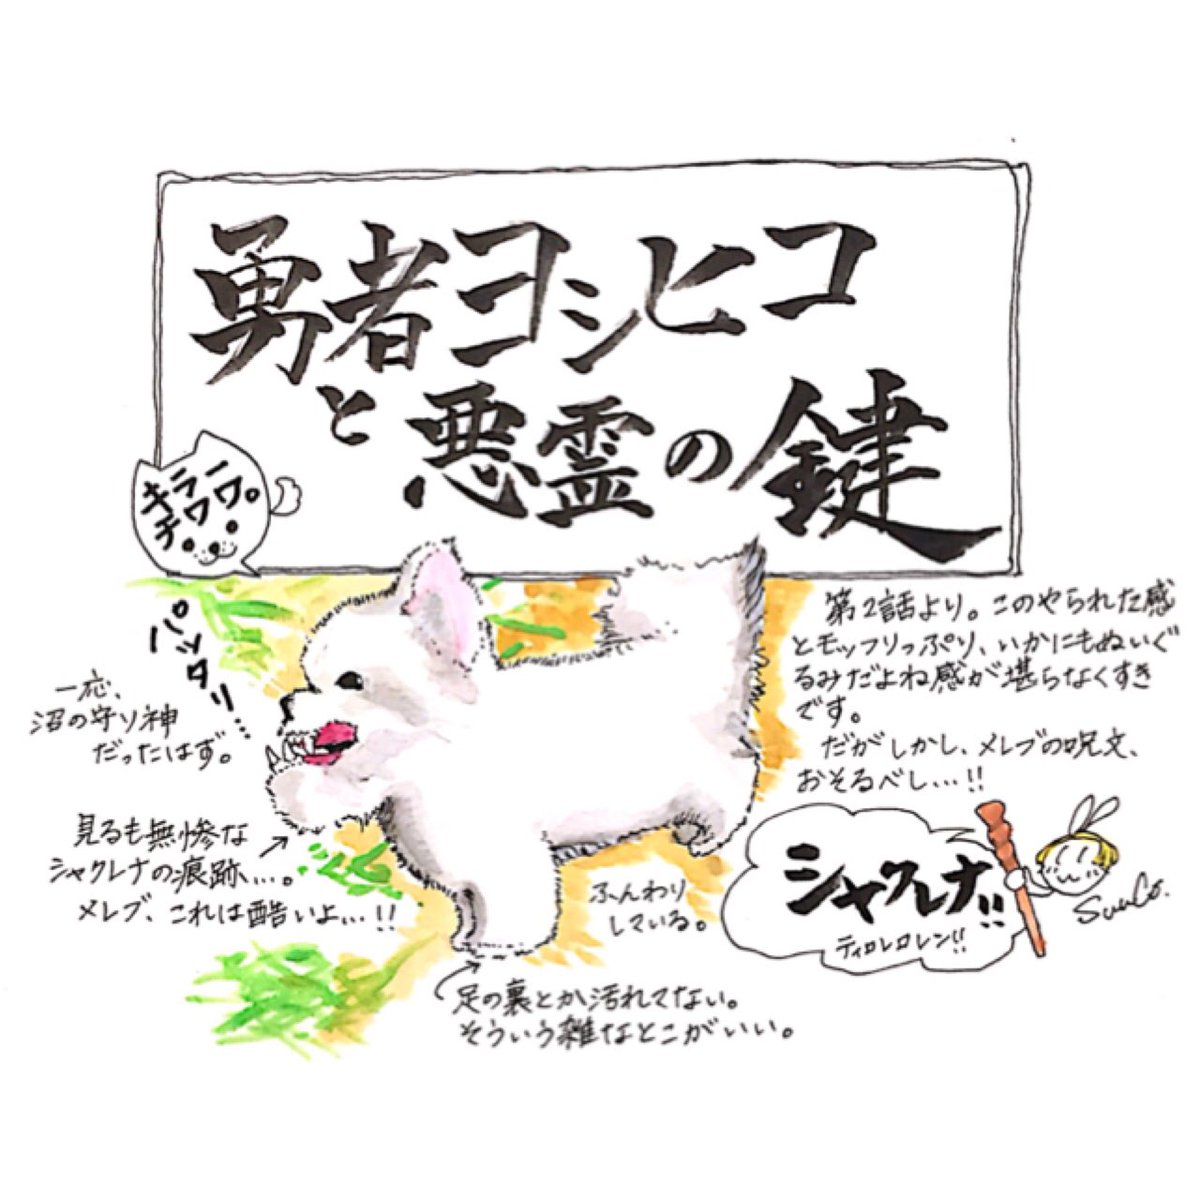 勇者ヨシヒコ
と悪霊の鍵
キラー
チワワ。
パッタリ…
一応、
沼の守り神
だったはず。
第2話より。このやられた感
とモッフりっぷり、いかにもぬいぐ
るみだよね感が堪らなくすき
です。
だがしかし、メレブの呪文、
おそるべし…!!
見るも無惨な
シャクレナの痕跡…。
メレブ、これは酷いよ…!!
ふんわり
している。
シャクレナ!!
ティロレロレン!!
SunCo.
足の裏とか汚れてない。
そういう雑なとこがいい。